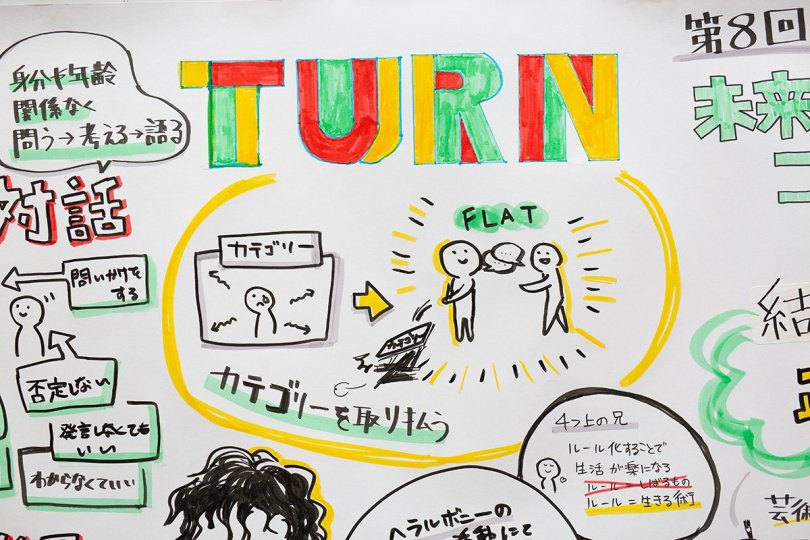 身分や年齢
関係なく
問う→考える→語る
対話
問いかけを
する
否定しない
発言しなくても
いい
わからなくていい
TURN
カテゴリー
FLAT
カテゴリー
カテゴリーを取り払う
4つ上の兄
ルール化することで
生活が楽になる
ルール=しばるもの
ルール=生きる術
ヘラルボニーの
活動にて
第8回
未来
結
芸術